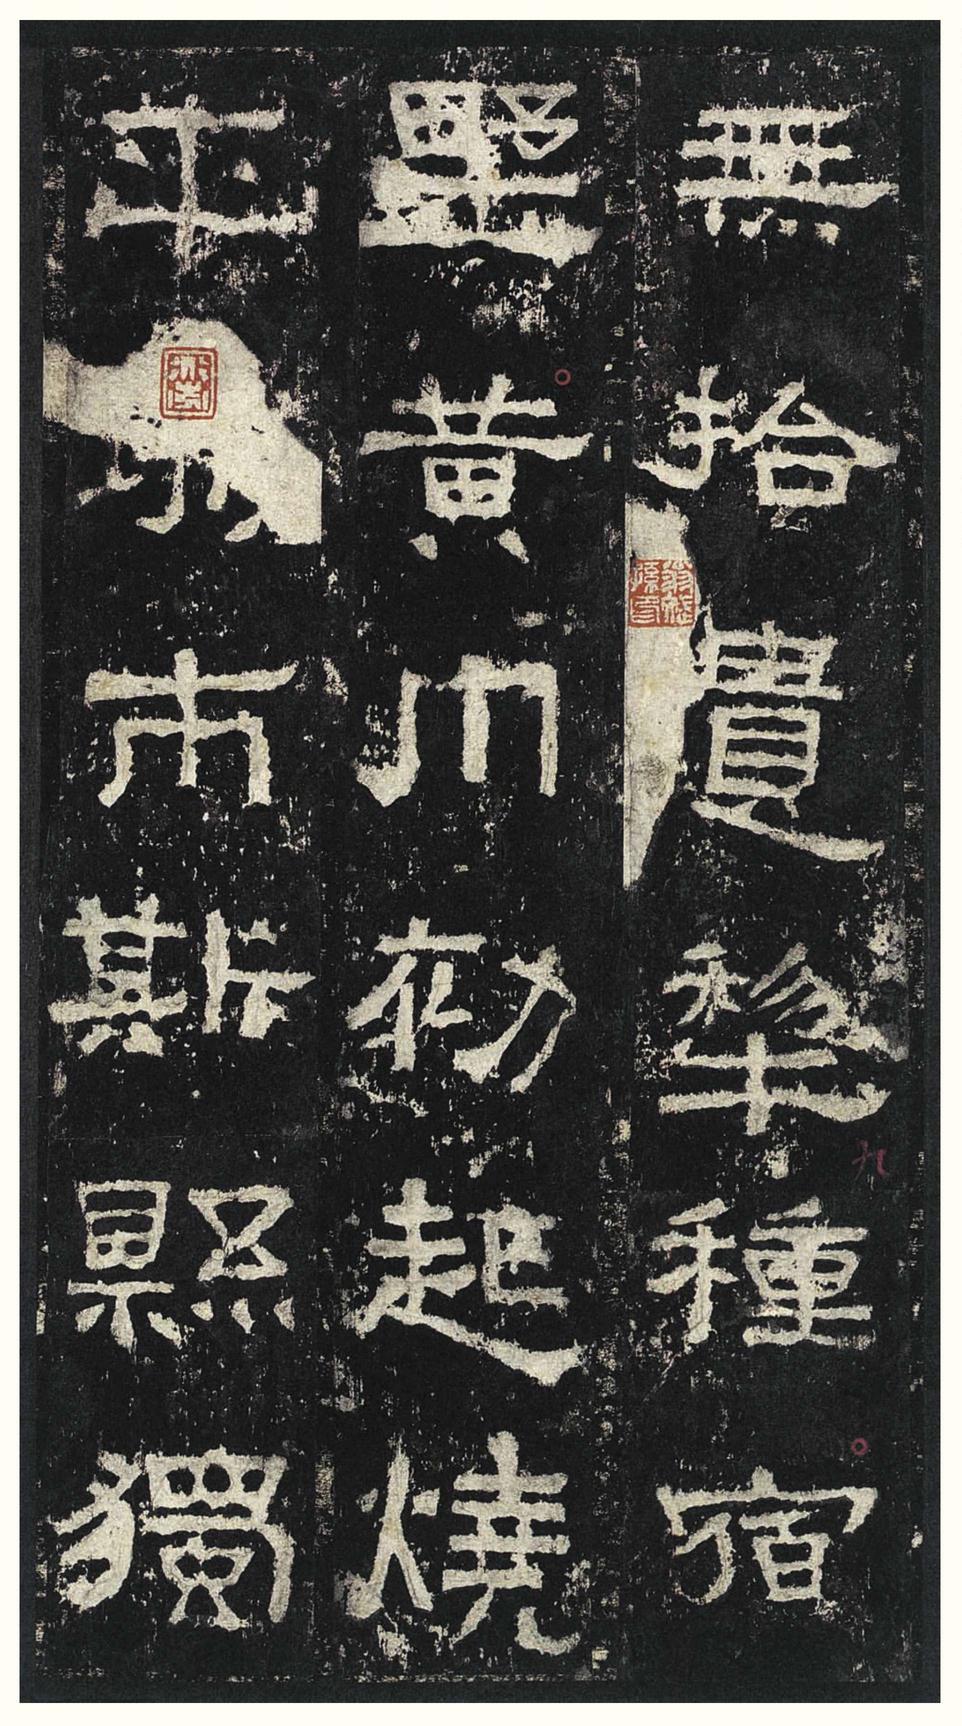 無拾遺犁種宿
墅黃巾初起燒
平市斯縣獨